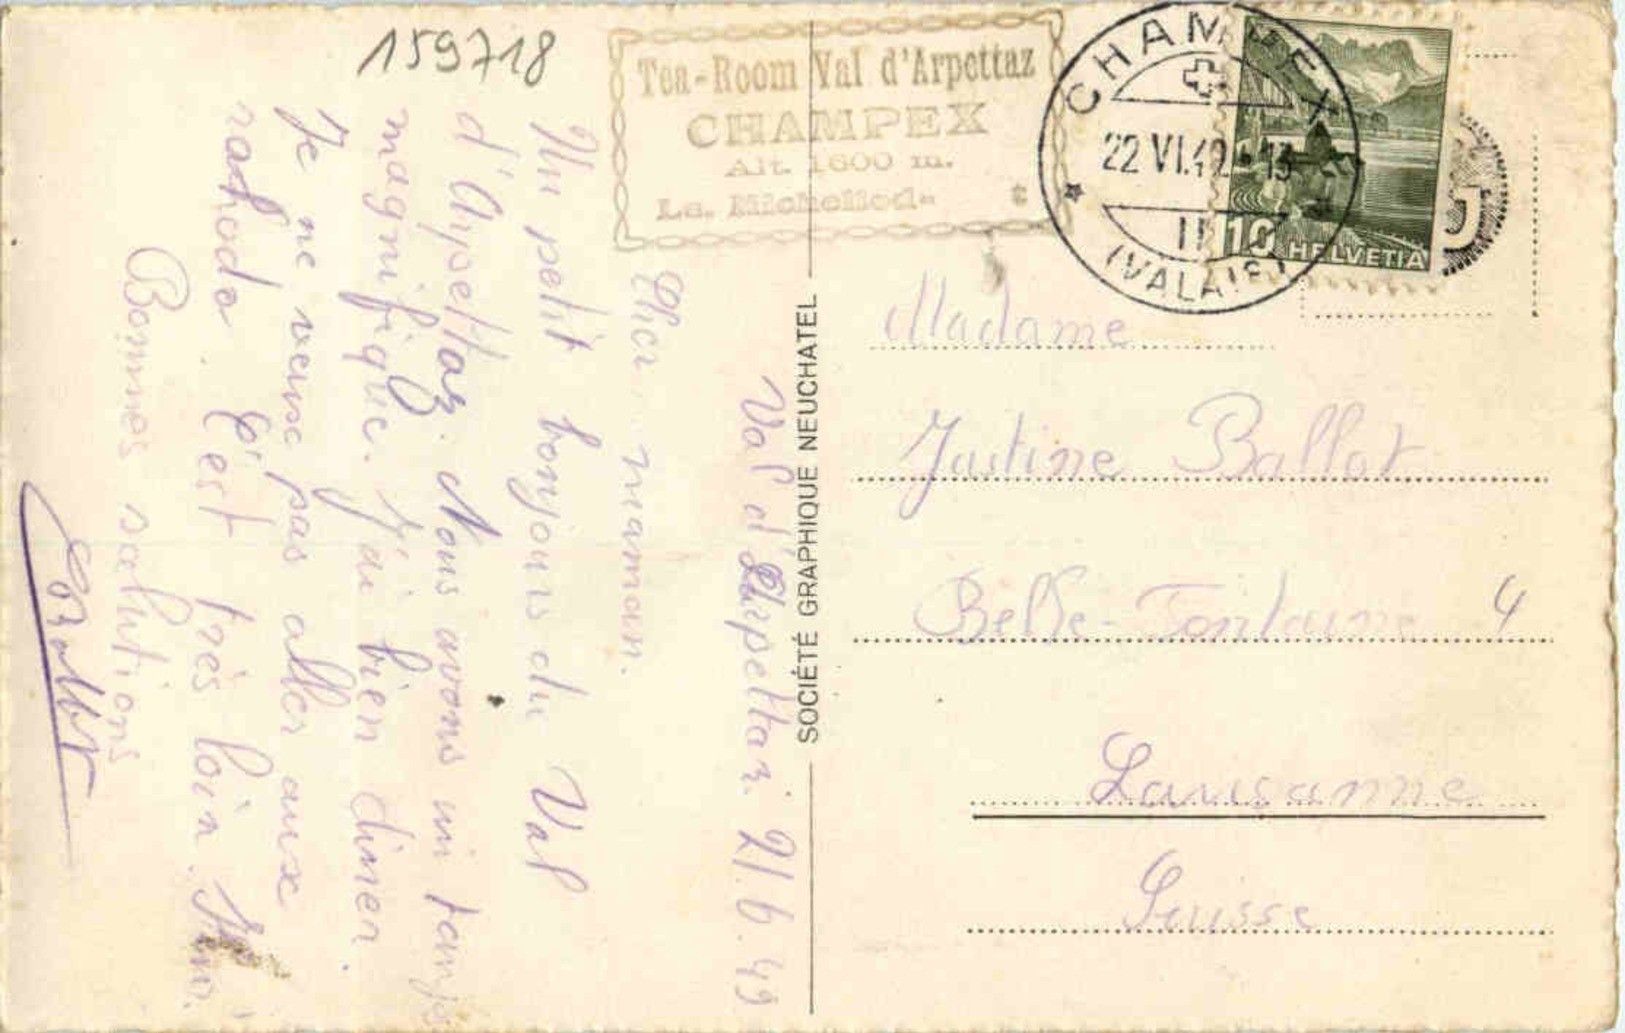 159718
Tea-Room Val d'Arpettaz
CHAMPEX
Alt. 1600 m.
CHAMPEX
22 VI.49 - 13
(VALAIS)
10 HELVETIA
SOCIÉTÉ GRAPHIQUE NEUCHATEL
Val d'Arpettaz 21.6.49
maman.
Un petit bonjour du Val
d'Arpettaz. Nous avons un temps
magnifique. J'ai bien diner
Je ne veux pas aller aux
C'est très loin.
Bonnes salutions
Madame
Justine Ballot
Belle-Fontaine 4
Lausanne
Suisse